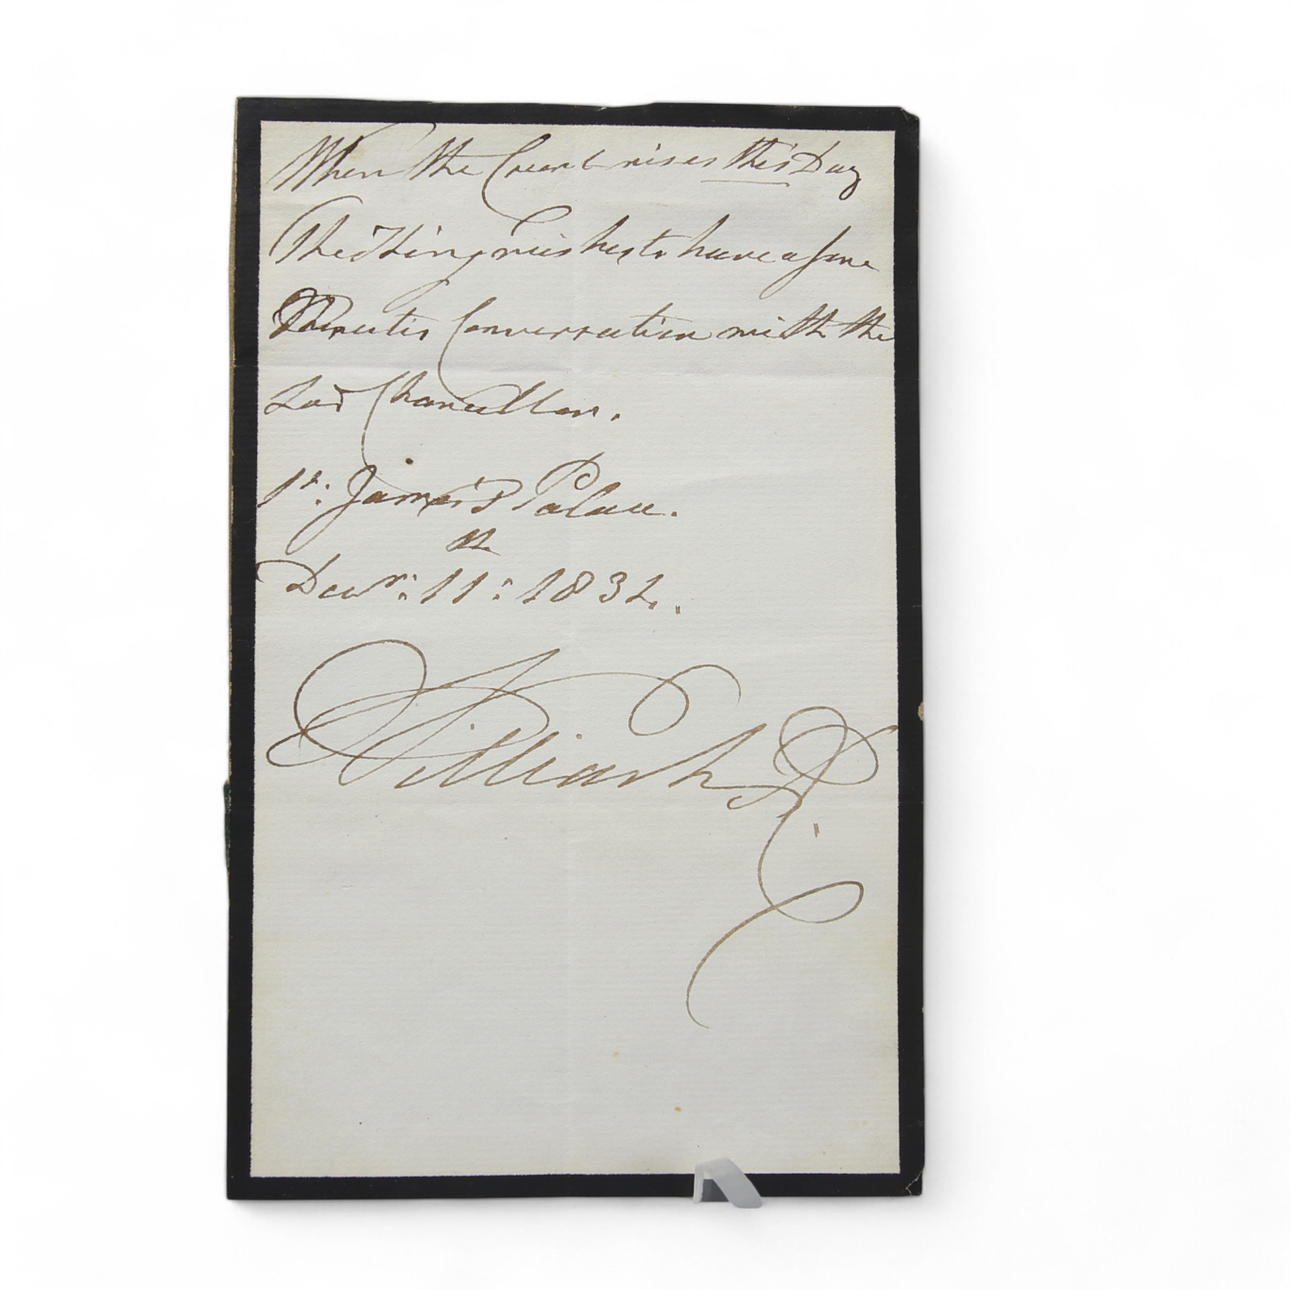 When the Court rises this Day
The King wishes to have a few
Minutes Conversation with the
Lord Chancellor.
St: James's Palace.
Decr: 11th: 1834.
William R.